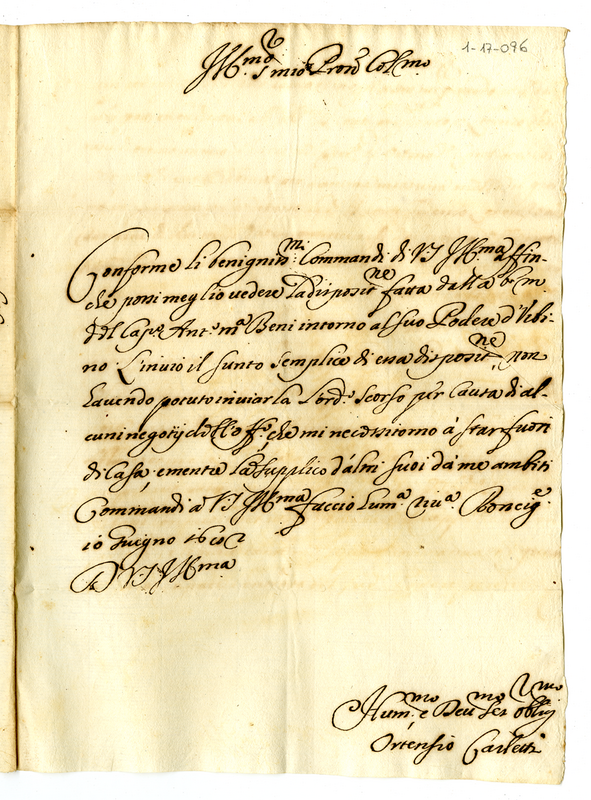 1-17-096
Ill.mo S.r mio Pron Col.mo
Conforme li benigniss.mi Commandi di VS Ill.ma affin-
che possi meglio vedere la disposit.ne fatta dalla b. m.
del Cap.o Ant.o m.a Beni intorno al suo Podere d'Ubi-
no. L'invio il sunto semplice di essa disposit.ne, non
havendo potuto inviarla l'ord.o scorso per causa di al-
cuni negotij dell'off.o, che mi necessitorno à star fuori
di Casa, e mentre la supplico d'altri suoi da me ambiti
Commandi a VS Ill.ma faccio hum.a riv.a. Roncig.e
10 Giugno
Di VS Ill.ma
Hum.mo e Deu.mo Ser oblig.mo
Ortensio Carletti